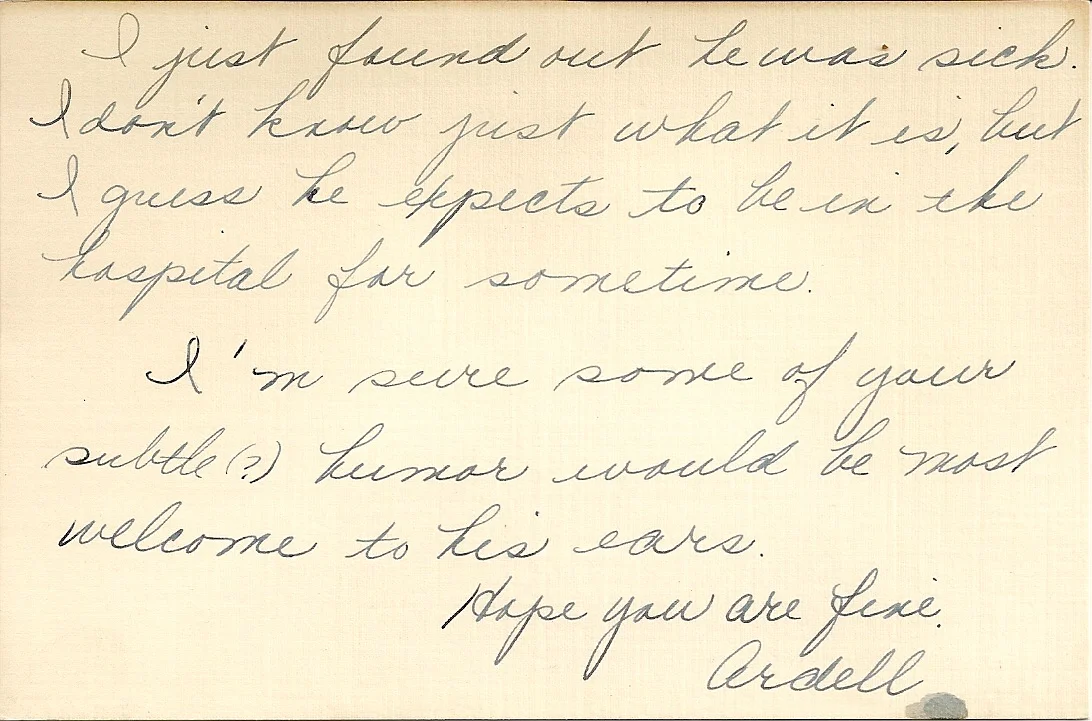 I just found out he was sick.
I don't know just what it is, but
I guess he expects to be in the
hospital for sometime.
I'm sure some of your
subtle(?) humor would be most
welcome to his ears.
Hope you are fine.
Ardell